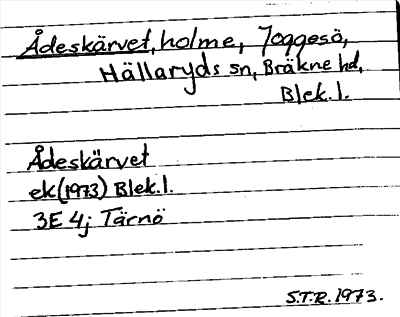 Ådeskärvet, holme, Joggesö,
Hällaryds sn, Bräkne hd,
Blek. l.
Ådeskärvet
ek (1973) Blek. l.
3E 4j Tärnö
S.T.R. 1973.